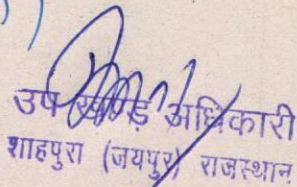 उप खण्ड अधिकारी
शाहपुरा (जयपुर) राजस्थान